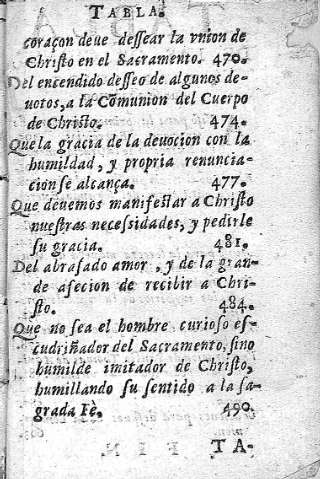 TABLA.
coraçon deue dessear la vnion de
Christo en el Sacramento. 470.
Del encendido desseo de algunos de-
uotos, a la Comunion del Cuerpo
de Christo. 474.
Que la gracia de la deuocion con la
humildad, y propria renuncia-
cion se alcança. 477.
Que deuemos manifestar a Christo
nuestras necessidades, y pedirle
su gracia. 481.
Del abrasado amor, y de la gran-
de afecion de recibir a Chri-
sto. 484.
Que no sea el hombre curioso es-
cudriñador del Sacramento, sino
humilde imitador de Christo,
humillando su sentido a la sa-
grada Fè. 490.
TA-